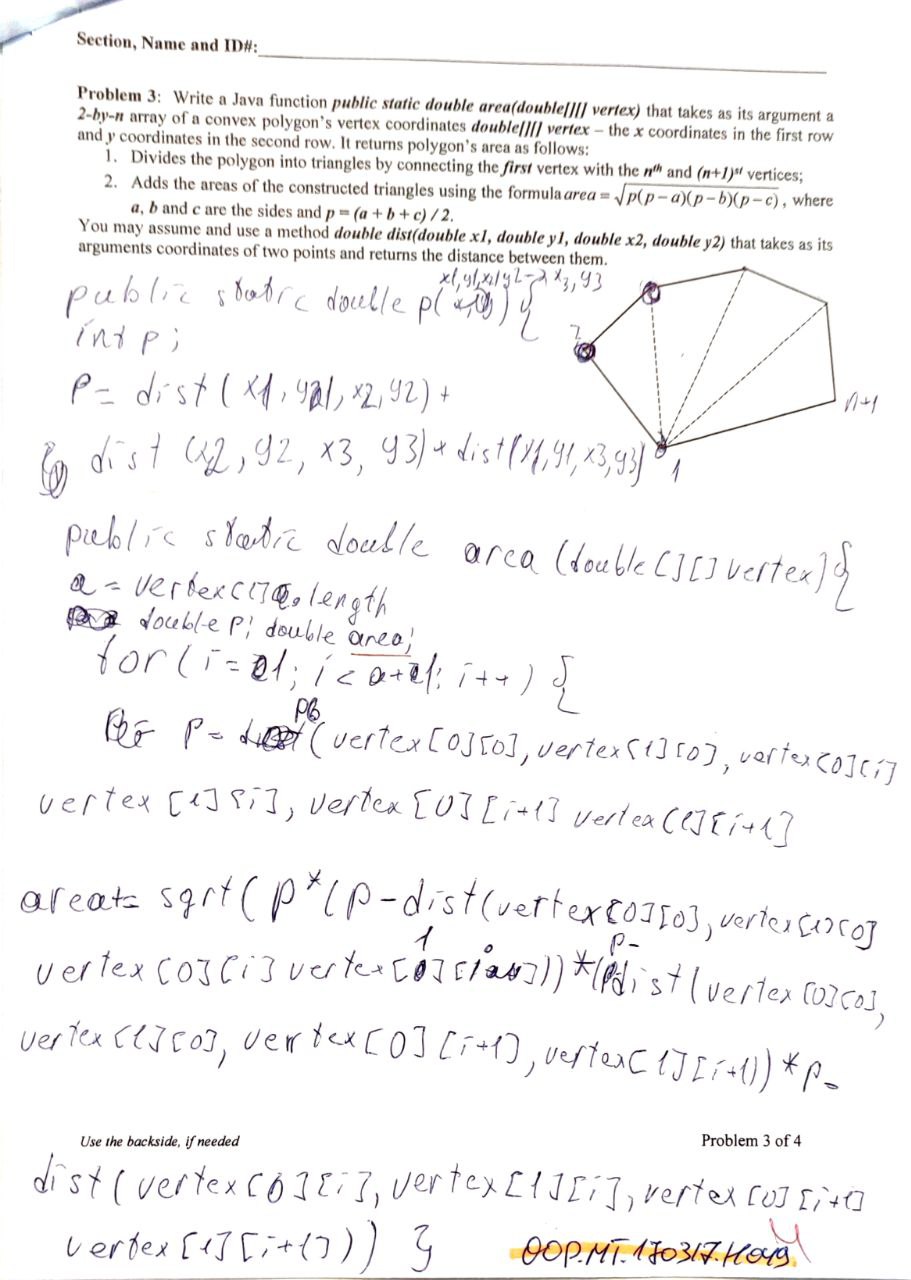 Section, Name and ID#:
Problem 3: Write a Java function public static double area(double[][] vertex) that takes as its argument a
2-by-n array of a convex polygon's vertex coordinates double[][] vertex – the x coordinates in the first row
and y coordinates in the second row. It returns polygon's area as follows:
1. Divides the polygon into triangles by connecting the first vertex with the nth and (n+1)st vertices;
2. Adds the areas of the constructed triangles using the formula area = √p(p−a)(p−b)(p−c), where
a, b and c are the sides and p = (a + b + c) / 2.
You may assume and use a method double dist(double x1, double y1, double x2, double y2) that takes as its
arguments coordinates of two points and returns the distance between them.
x1,y1,x2,y2 x3,y3
public static double p( ) {
int p;
2
P= dist (x1, y1, x2, y2) +
n+1
dist (x2, y2, x3, y3) + dist(x1,y1,x3,y3)
1
public static double area (double[][] vertex) {
a = vertex[1].length
double p; double area;
for(i=1; i<a+1; i++) {
P= p(vertex[0][0], vertex[1][0], vertex[0][i]
vertex [1][i], vertex [0][i+1] vertex[1][i+1]
area+= sqrt(p*(p-dist(vertex[0][0], vertex[1][0]
vertex[0][i] vertex[1][i]))*(p-dist(vertex[0][0],
vertex[1][0], vertex[0][i+1], vertex[1][i+1))*p-
Use the backside, if needed
Problem 3 of 4
dist(vertex[0][i], vertex[1][i], vertex[0][i+1]
vertex[1][i+1])) }
OOP.MT.170317.H049